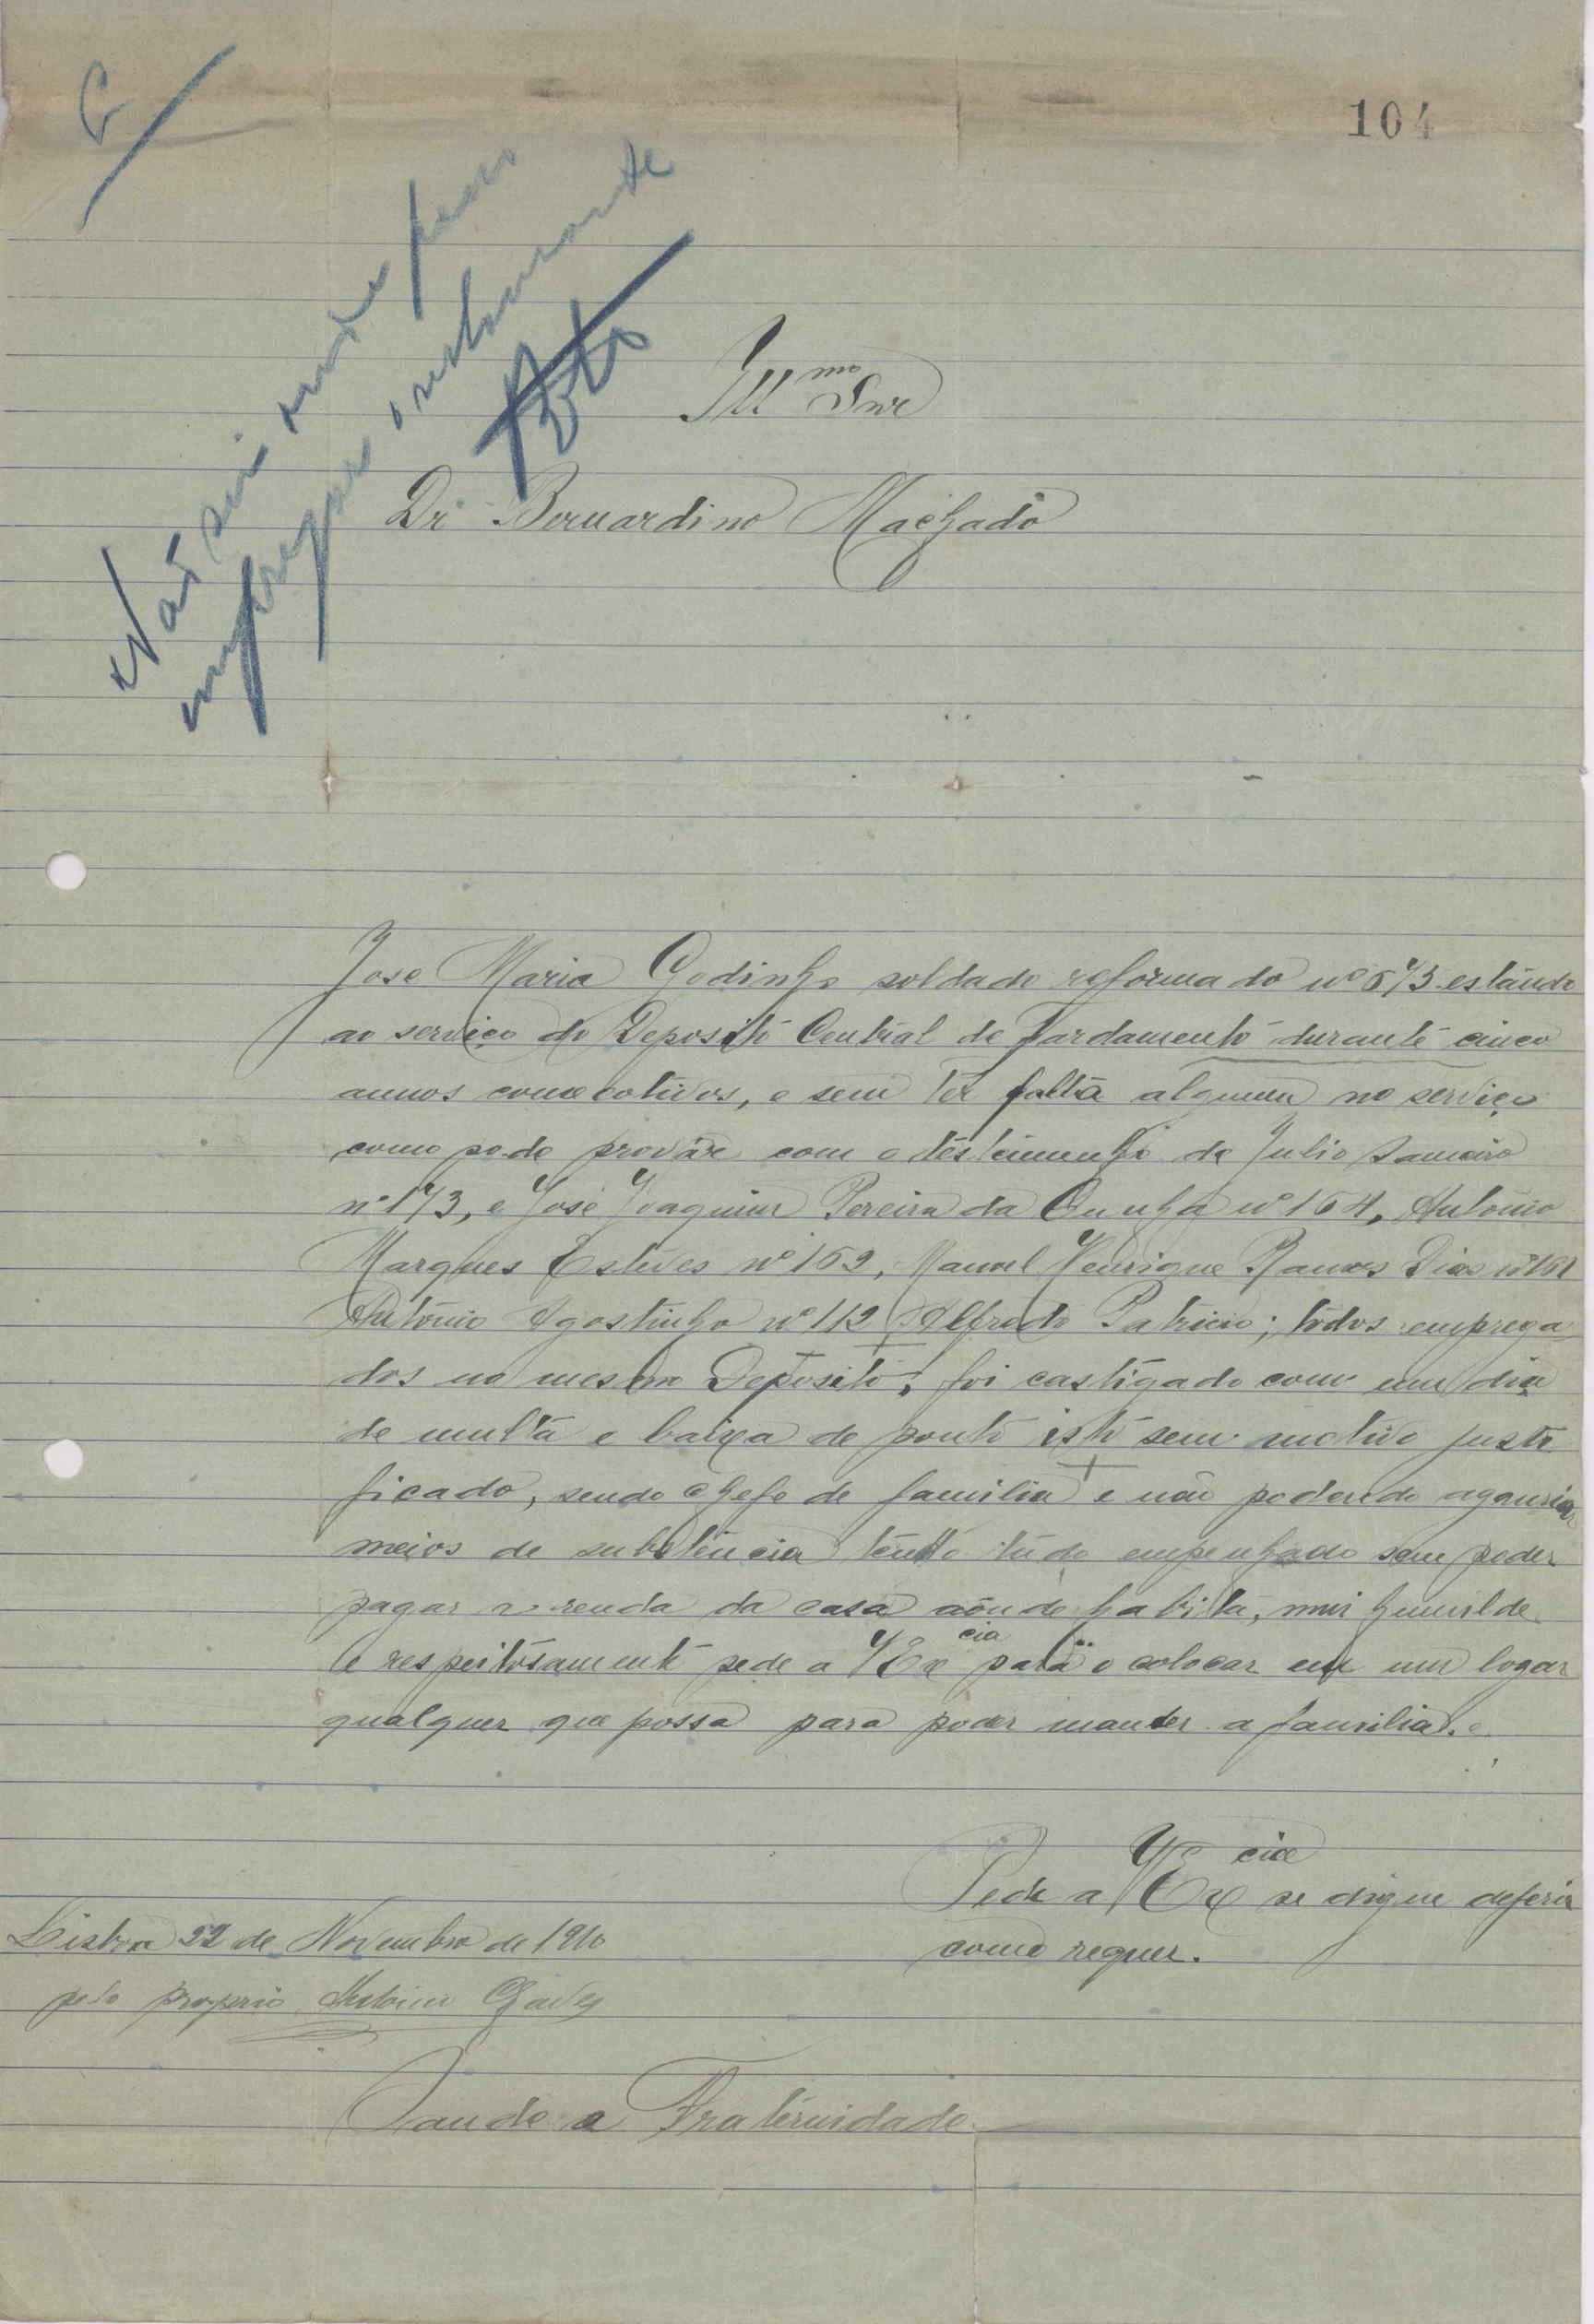 104
Não sei onde possa
empregar o reclamante
Ill.mo Snr
Dr. Bernardino Machado
Jose Maria Godinho soldado reformado nº 673 estando
ao serviço do Deposito Central de Fardamento durante cinco
annos consecotivos, e sem ter falta alguma no serviço
como pode provare com o testemunho de Julio Sameiro
nº 173, e José Joaquim Pereira da Cunha nº 164, Antonio
Marques Esteves nº 162, Manuel Henrique Ramos Dias nº 161
Antonio Agostinho nº 112 Alfredo Patricio; todos emprega
dos no mesmo Deposito, foi castigado com um dia
de multa e baixa de ponto isto sem motivo justi
ficado, sendo chefe de familia e não podendo agauriar
meios de substencia tendo tudo empenhado sem poder
pagar a renda da casa aonde habita, mui humilde
e respeitosamente pede a V Ex cia para o colocar em um logar
qualquer que possa para poder manter a familia. e
Pede a V Ex cia se digne deferir
como requer.
Lisboa 22 de Novembro de 1910
pelo proprio Antonio Chaves
Saude e Fraternidade